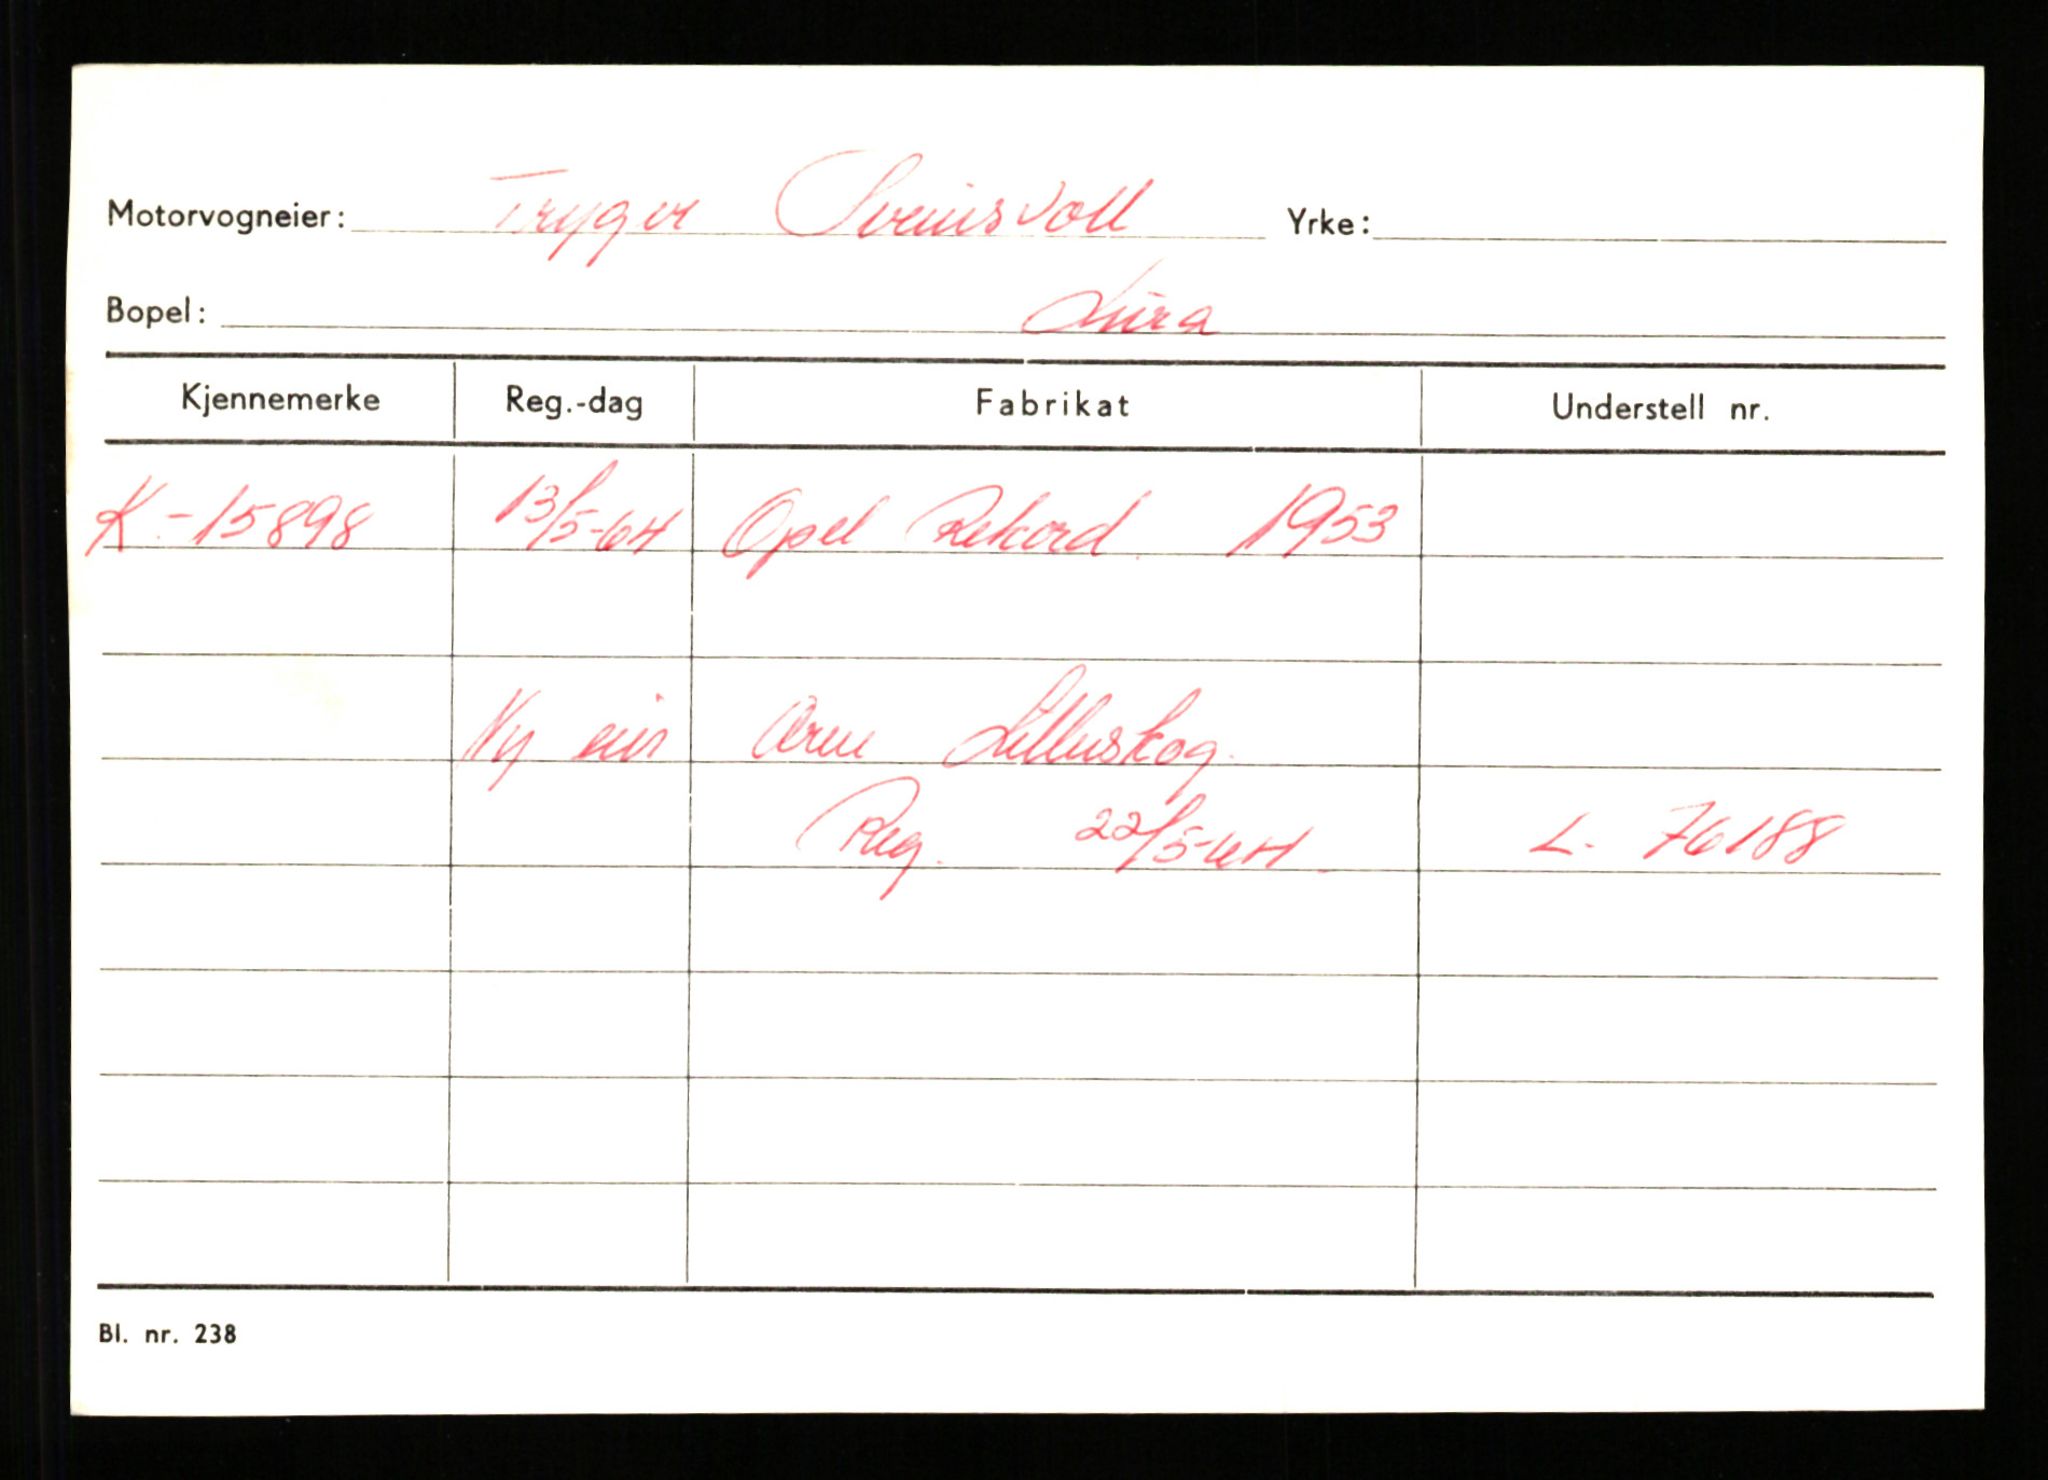 Motorvogneier: Trygve Sveinsvoll Yrke:
Bopel: Lura
Kjennemerke Reg.-dag Fabrikat Understell nr.
K-15898 13/5-64 Opel Rekord 1953
Ny eier Arne Lilleskog.
Reg. 22/5-64 L. 76188
Bl. nr. 238